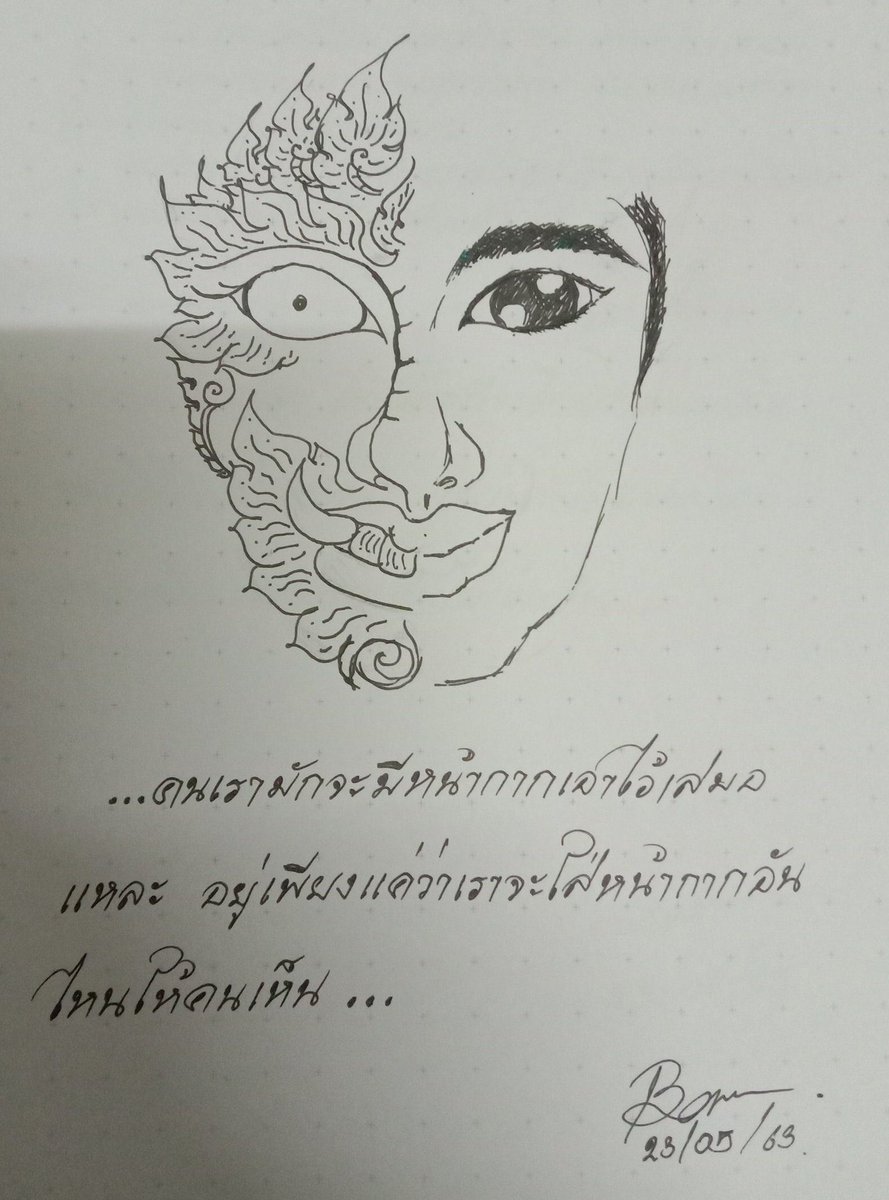 ...คนเรามักจะมีหน้ากากเอาไว้เสมอ
แหละ อยู่เพียงแค่ว่าเราจะใส่หน้ากากอัน
ไหนให้คนเห็น ...
23/05/63